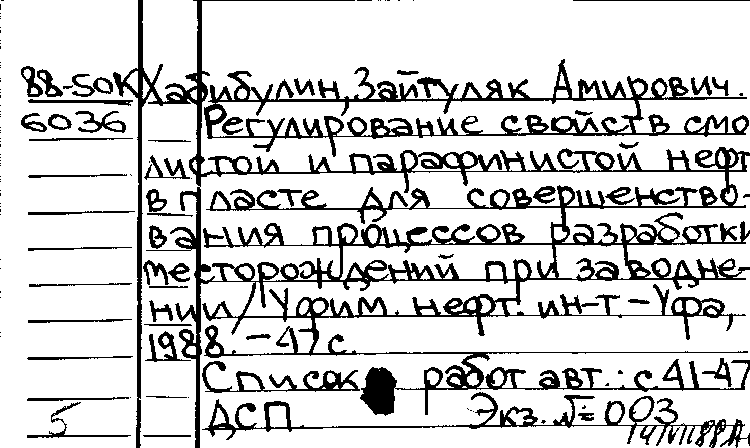 88-50К Хабибулин, Зайтуляк Амирович.
6036 Регулирование свойств смо
листой и парафинистой нефт
в пласте для совершенство-
вания процессов разработки
месторождений при заводне-
нии/Уфим. нефт. ин-т. - Уфа,
1988. - 47 с.
Список работ авт.: с. 41-47
ДСП. Экз. № 003
5